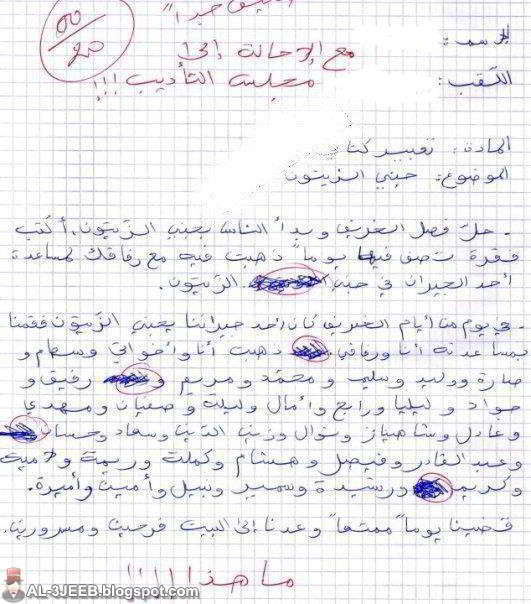 عميق جدا"
00/20
مع الإحالة إلى
مجلس التأديب!!!
الإسم:
اللقب:
المادة: تعبير كتا
الموضوع: جني الزيتون
- حلّ فصل الخريف وبدأ الناس بجني الزيتون. أكتب
فقرة تصف فيها يوما" ذهبت فيه مع رفاقك لمساعدة
أحد الجيران في جني الزيتون.
في يوم من أيام الخريف كان أحد جيراننا يجني الزيتون فقمنا
بمساعدته أنا ورفاقي. ذهبت أنا وأخواتي وسهام و
صارة ووليد وسليم و محمد و مريم و رفيق و
جواد و ليليا ورابح وأمال وليلة و صفيان ومهدي
وعادل وشاهيناز ونوال وزين الدين وسعاد وحسان
وعبد القادر وفيصل وهشام وكملت وريمة ولامية
وكريم ورشيدة وسمير ونبيل وأمين وأميرة.
قضينا يوما" ممتعا" وعدنا إلى البيت فرحين ومسرورين.
ما هذا!!!!!
AL-3JEEB.blogspot.com